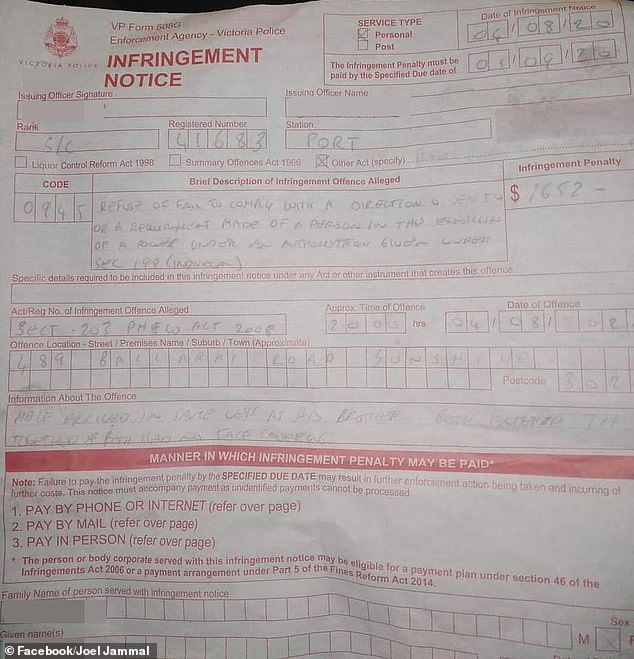 VP Form 508G
Enforcement Agency - Victoria Police
VICTORIA POLICE
INFRINGEMENT
NOTICE
SERVICE TYPE
Personal
Post
Date of Infringement Notice
04/08/20
The Infringement Penalty must be
paid by the Specified Due date of
01/09/20
Issuing Officer Signature
Issuing Officer Name
Rank
S/C
Registered Number
41683
Station
PORT
Liquor Control Reform Act 1998
Summary Offences Act 1966
Other Act (specify)
Infringement Penalty
$ 1652 -
CODE
0945
Brief Description of Infringement Offence Alleged
REFUSE OF FAIL TO COMPLY WITH A DIRECTION GIVEN TO
OR A REQUIREMENT MADE OF A PERSON IN THE EXERCISE
OF A POWER UNDER AN AUTHORISATION GIVEN UNDER
SEC 199 (INDIVIDUAL)
Specific details required to be included in this infringement notice under any Act or other instrument that creates this offence.
Act/Reg No. of Infringement Offence Alleged
SECT. 203 PH&W ACT 2008
Approx. Time of Offence
2000 hrs
Date of Offence
04/08/202
Offence Location - Street / Premises Name / Suburb / Town (Approximate)
489 BALLARAT ROAD SUNSHINE
Postcode
302
Information About The Offence
MALE ARRIVED IN SAME CAR AS HIS BROTHER BOTH ENTERED 711
TOGETHER & BOTH HAD NO FACE COVERING
MANNER IN WHICH INFRINGEMENT PENALTY MAY BE PAID*
Note: Failure to pay the infringement penalty by the SPECIFIED DUE DATE may result in further enforcement action being taken and incurring of
further costs. This notice must accompany payment as unidentified payments cannot be processed.
1. PAY BY PHONE OR INTERNET (refer over page)
2. PAY BY MAIL (refer over page)
3. PAY IN PERSON (refer over page)
* The person or body corporate served with this infringement notice may be eligible for a payment plan under section 46 of the
Infringements Act 2006 or a payment arrangement under Part 5 of the Fines Reform Act 2014.
Family Name of person served with infringement notice
Given name(s)
Sex
M F
© Facebook/Joel Jammal